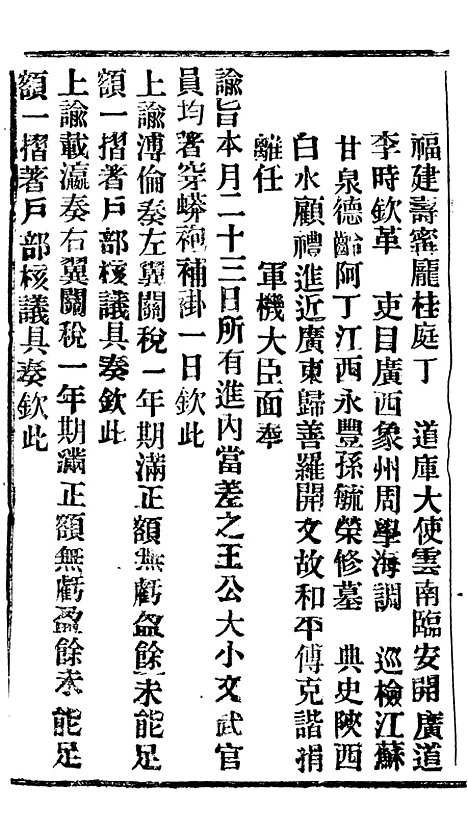 福建壽寗龐桂庭丁　道庫大使雲南臨安開廣道
李時欽革　吏目廣西象州周學海調　巡檢江蘇
甘泉德齡阿丁江西永豐孫毓榮修墓　典史陝西
白水顧禮進近廣東歸善羅開文故和平傅克諧捐
離任　　軍機大臣面奉
諭旨本月二十三日所有進內當差之王公大小文武官
員均著穿蟒袍補掛一日欽此
上諭溥倫奏左翼關稅一年期滿正額無虧盈餘未能足
額一摺著戶部核議具奏欽此
上諭載瀛奏右翼關稅一年期滿正額無虧盈餘未能足
額一摺著戶部核議具奏欽此